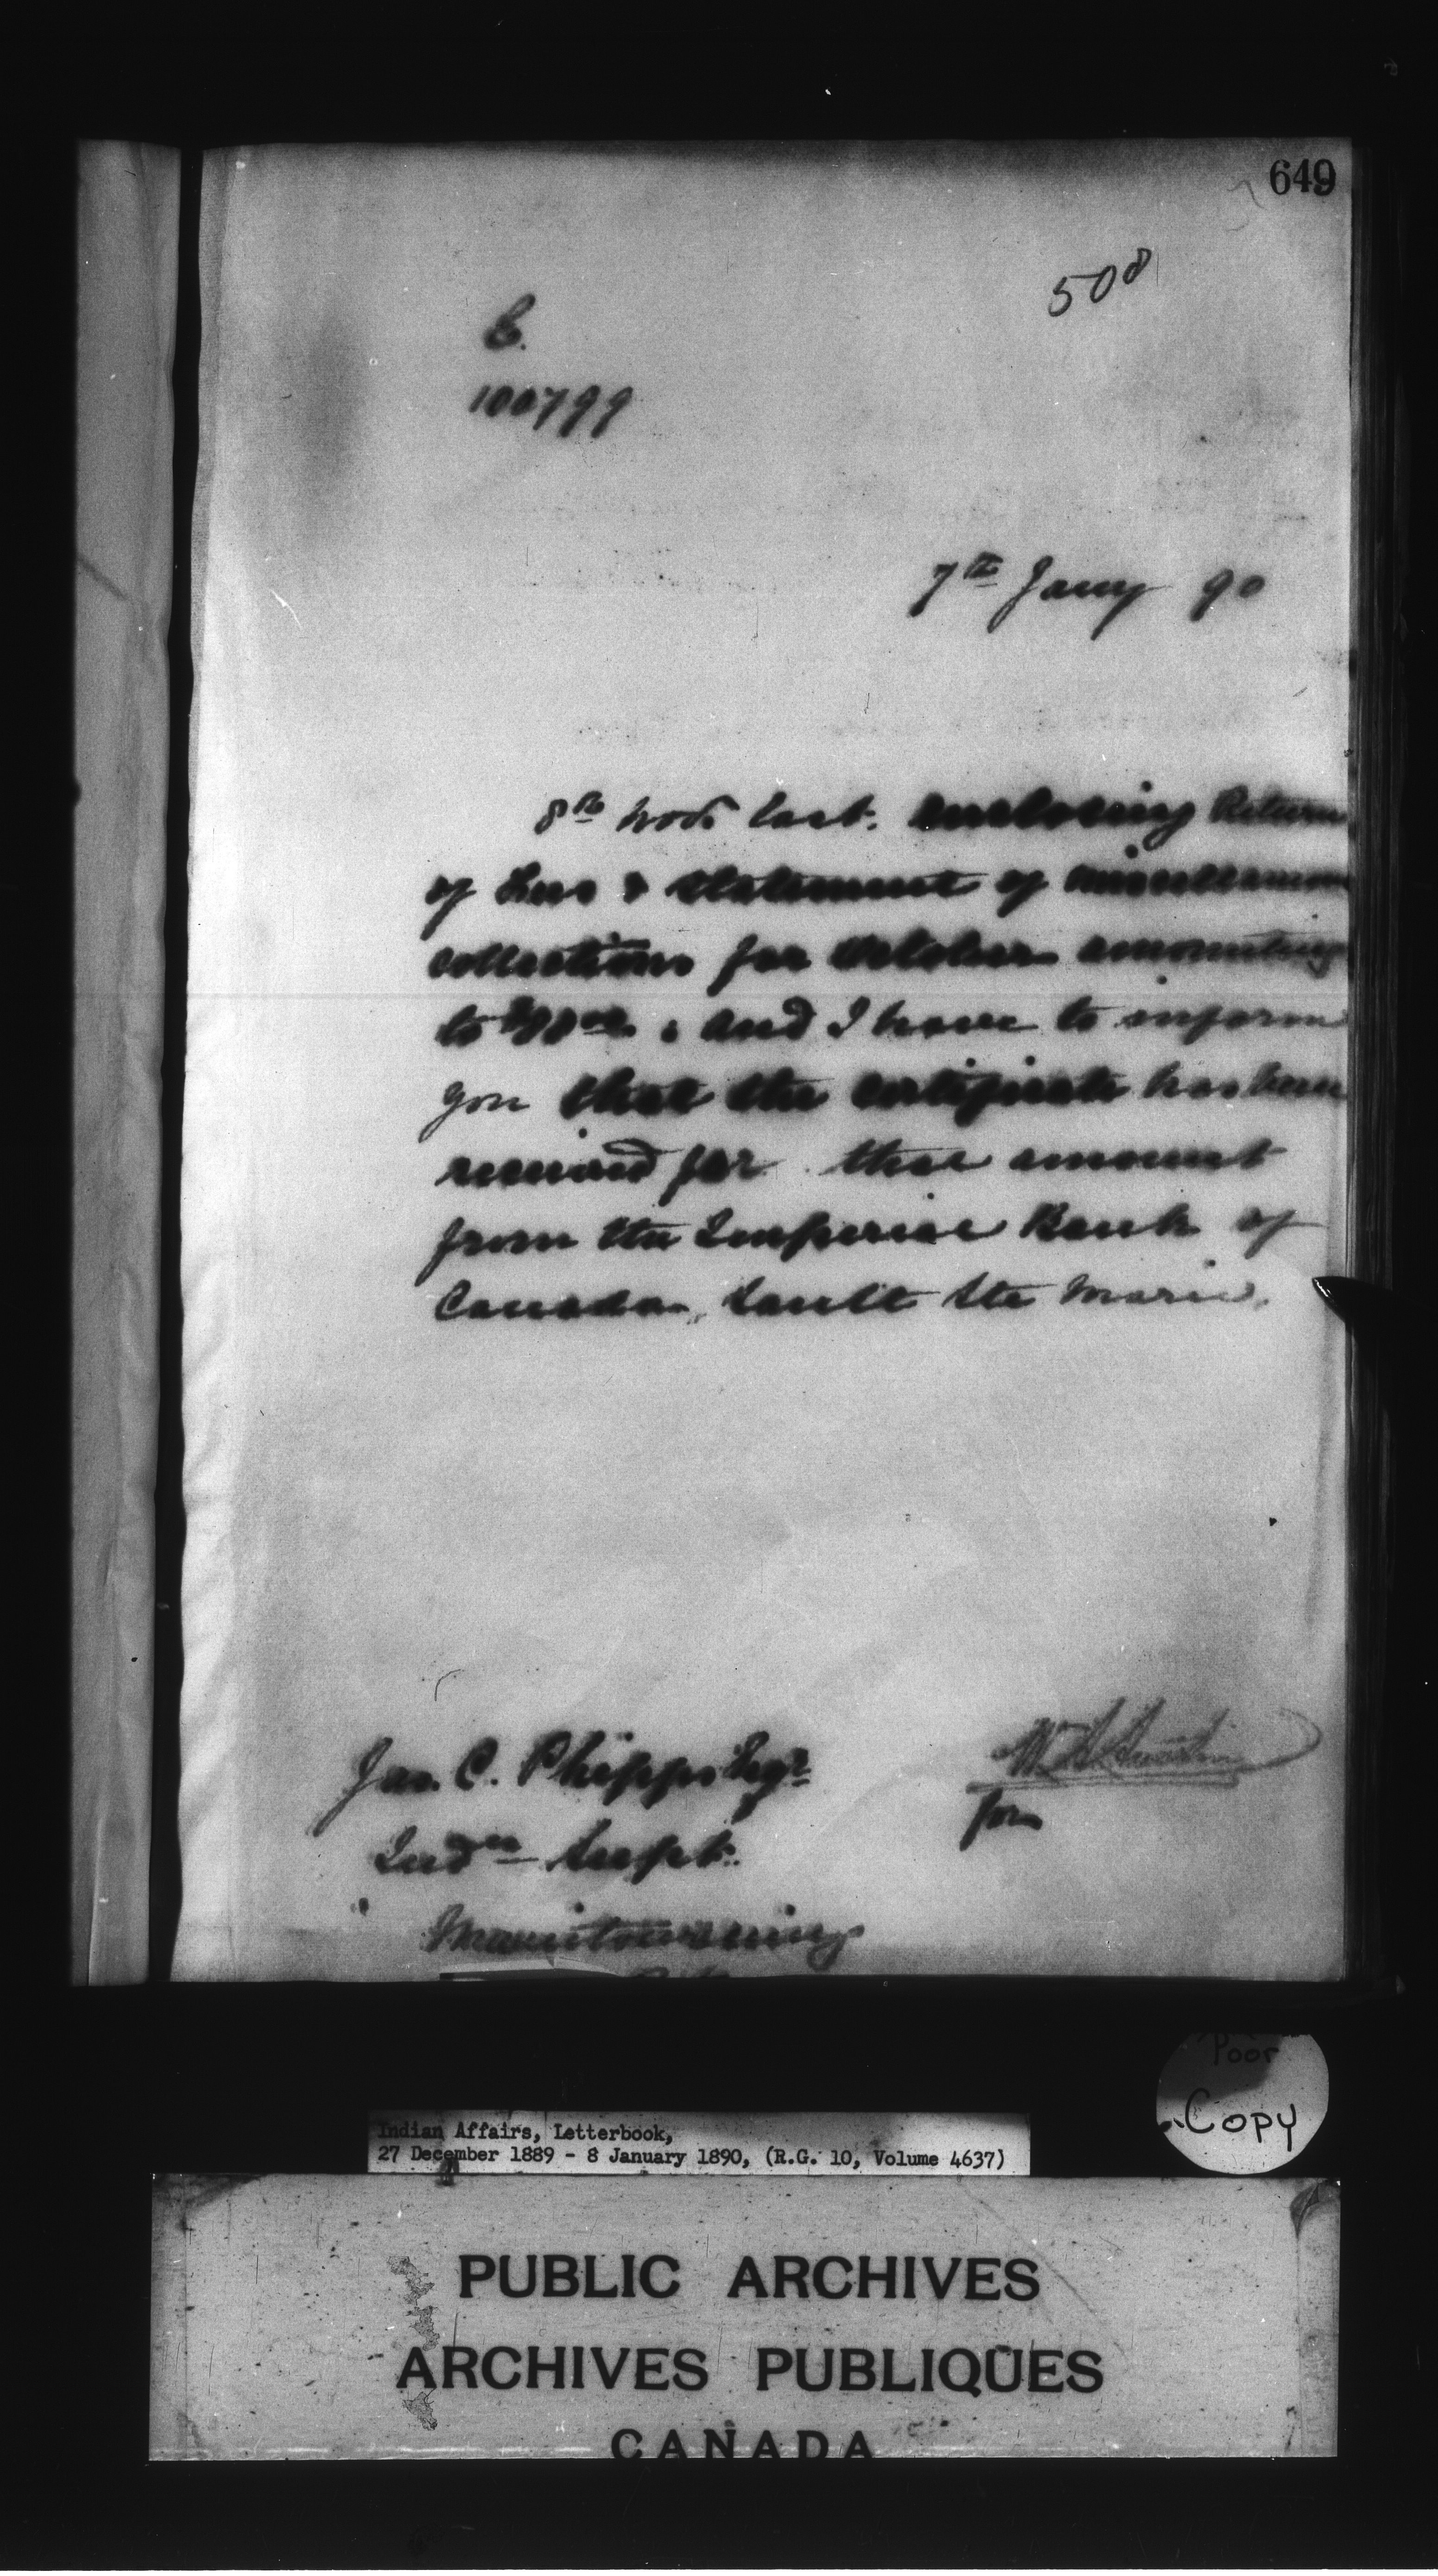 649
508
C.
100799
7th Jany 90
8th Nov. last. enclosing Return
of & statement of miscellaneous
collections for October amounting
to and I have to inform
you that the certificate has been
received for that amount
from the Imperial Bank of
Canada, Sault Ste Marie.
Jas. C. Phipps Esqr.
for
Indn Supt.
Manitowaning
Poor
Copy
Indian Affairs, Letterbook,
27 December 1889 - 8 January 1890, (R.G. 10, Volume 4637)
PUBLIC ARCHIVES
ARCHIVES PUBLIQUES
CANADA